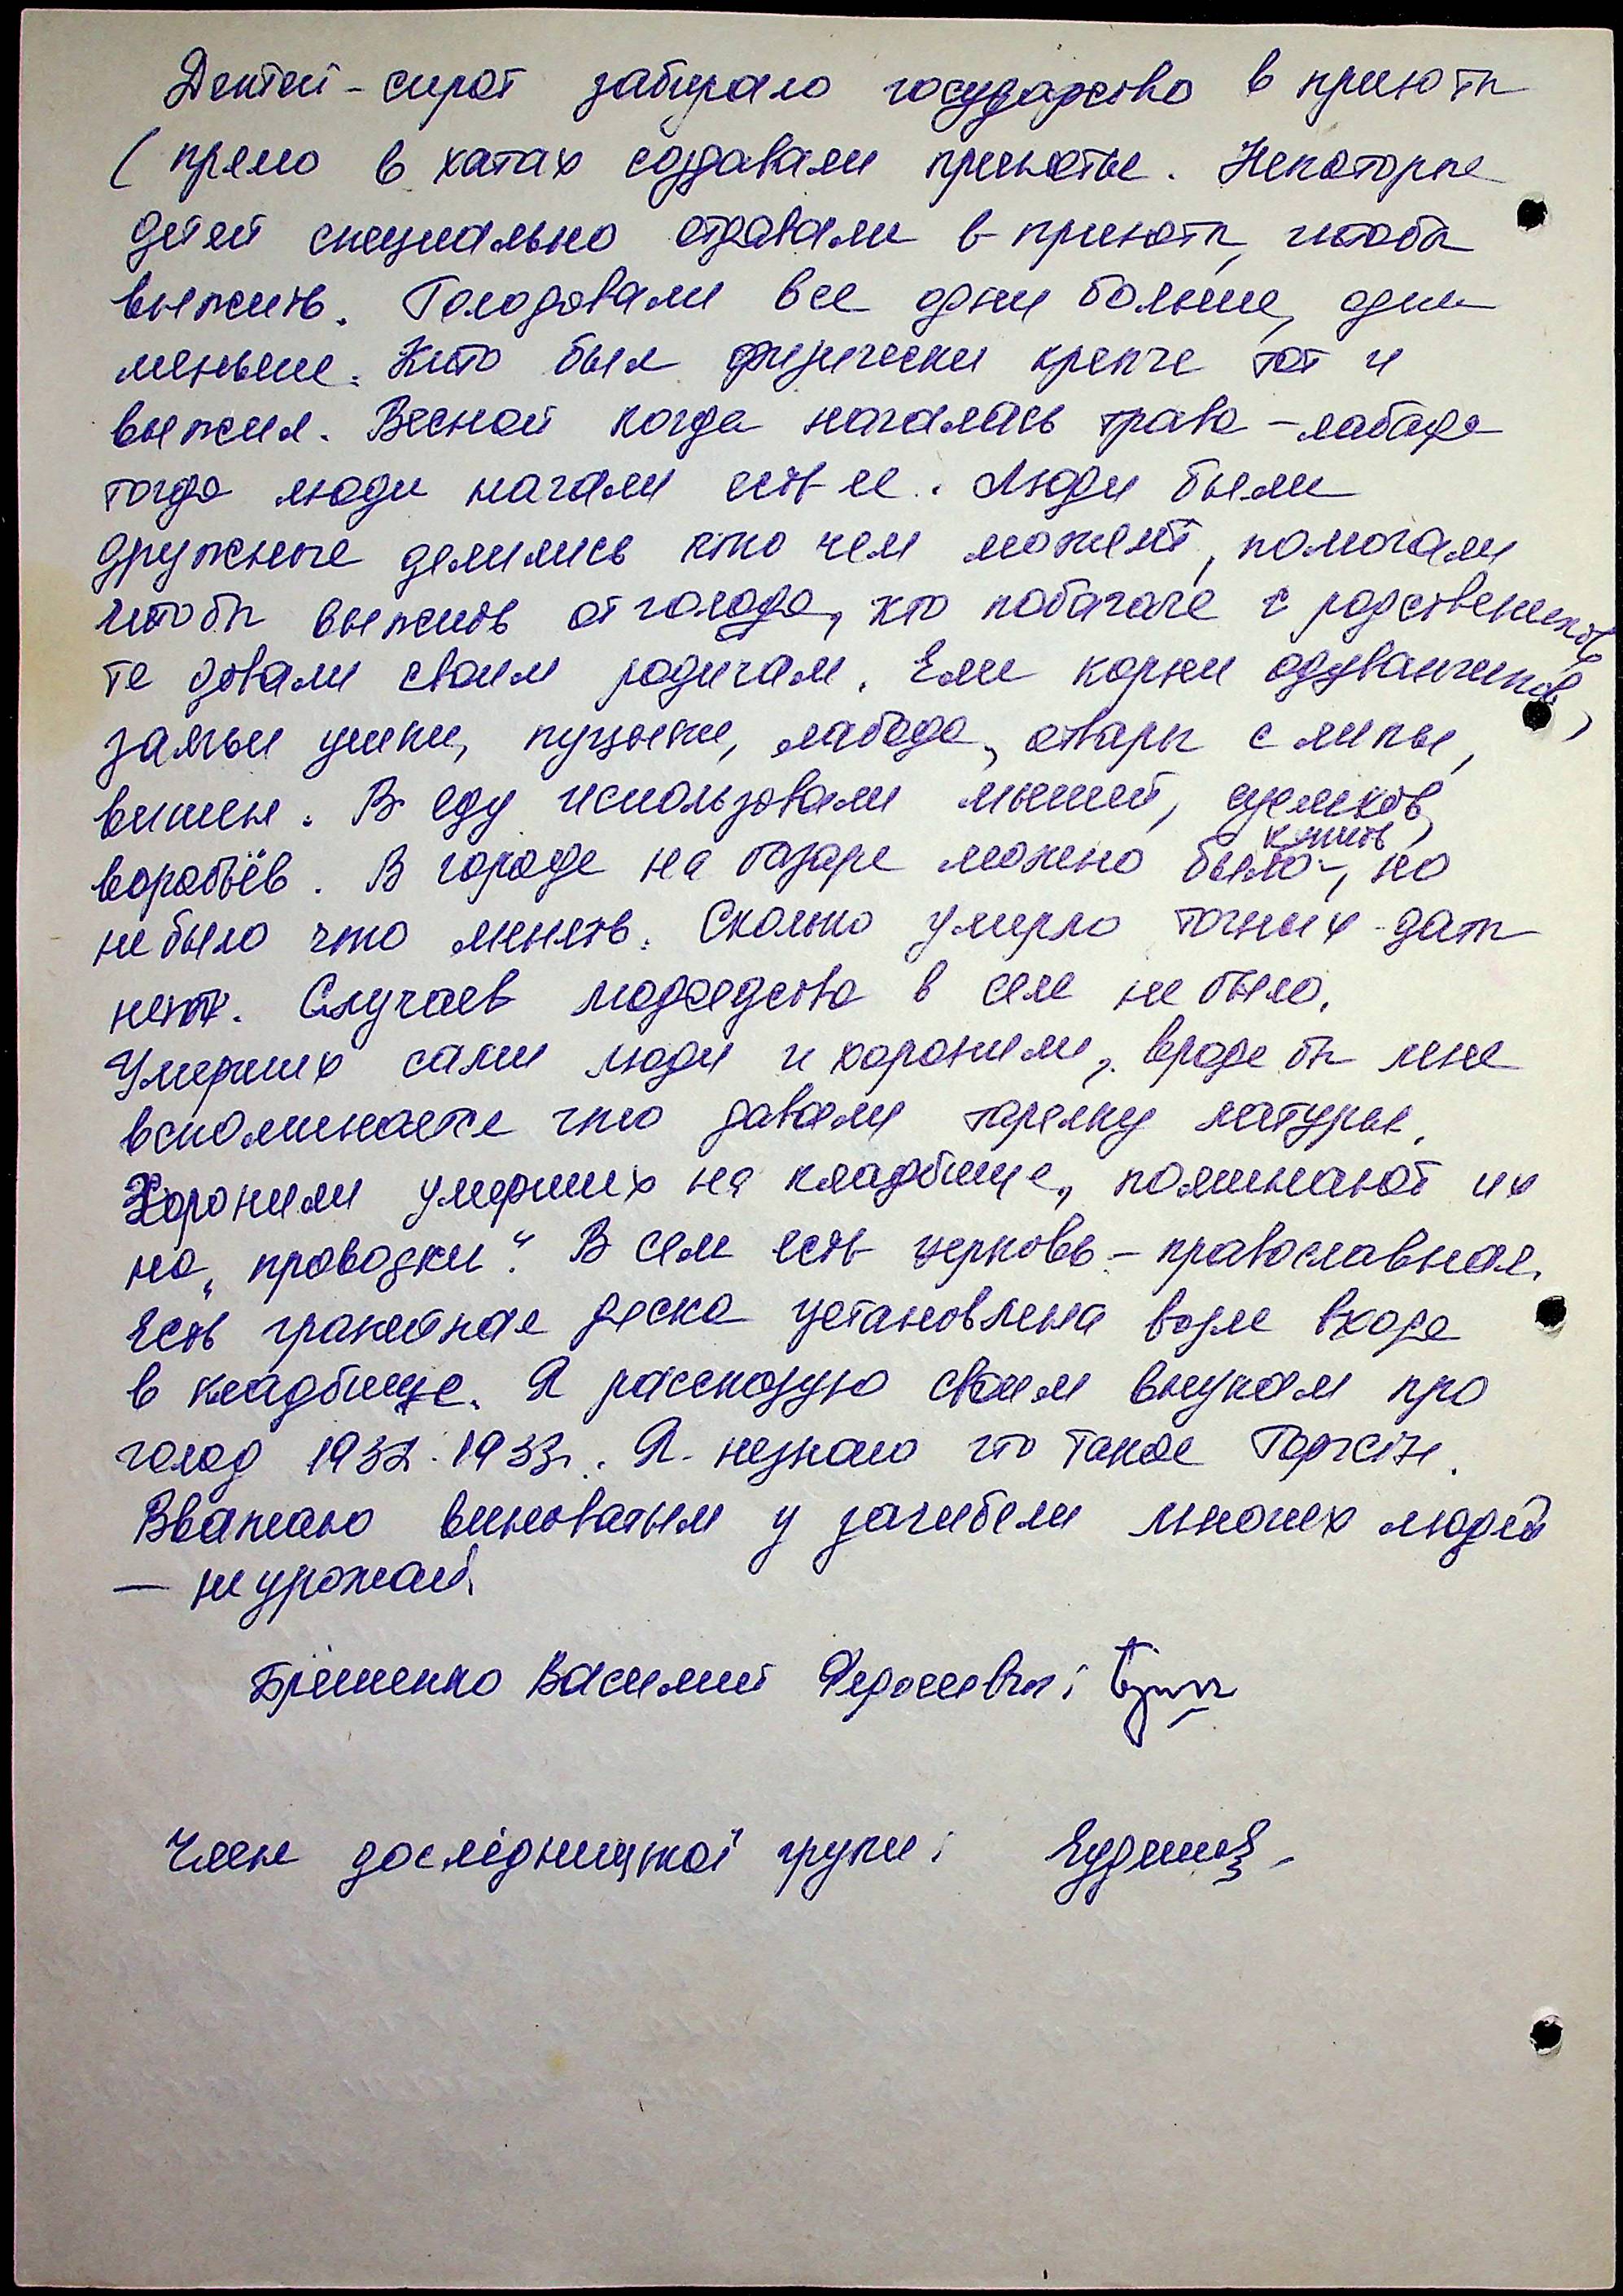 Дектей - сирот забирало государство в приюты
( прямо в хатах создавали приюты. Некоторые
детей специально отдавали в приюты, чтобы
выжить. Голодовали все одни больше, одни
меньше. Кто был физически крепче тот и
выжил. Весной когда началась трава - лабода
тогда люди начали есть ее. Люди были
дружные делились кто чем может, помогали
чтобы выжить от голода, кто побагаче с родственников
те довали своим родичам. Ели корни одуванчиков,
заячьи ушки, пуцики, лабода, отвары с липы,
вишни. В еду использовали мышей, сусликов,
воробьёв. В городе на базаре можно было купить, но
не было что менять. Сколько умерло точных дат
нет. Случаев людоедства в селе не было.
Умерших сами люди и хоронили, вроде бы мне
вспоминается что давали тарелку матуры.
Хоронили умерших на кладбище, поминают их
на „проводки“. В селе есть церковь - православная.
Есть гранитная доска установлена возле входа
в кладбище. Я рассказую своим внукам про
голод 1932-1933г. Я незнаю что такое Торгсін.
Вважаю виноватым у загибели многих людей
— неурожай.
Брешенко Василий Федосеевич;
Член дослідницької групи: